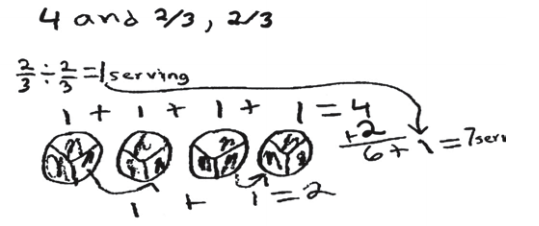 4 and 2/3, 2/3
2/3 ÷ 2/3 = 1 serving
1 + 1 + 1 + 1 = 4
+2
6 + 1 = 7 serv
1 + 1 = 2